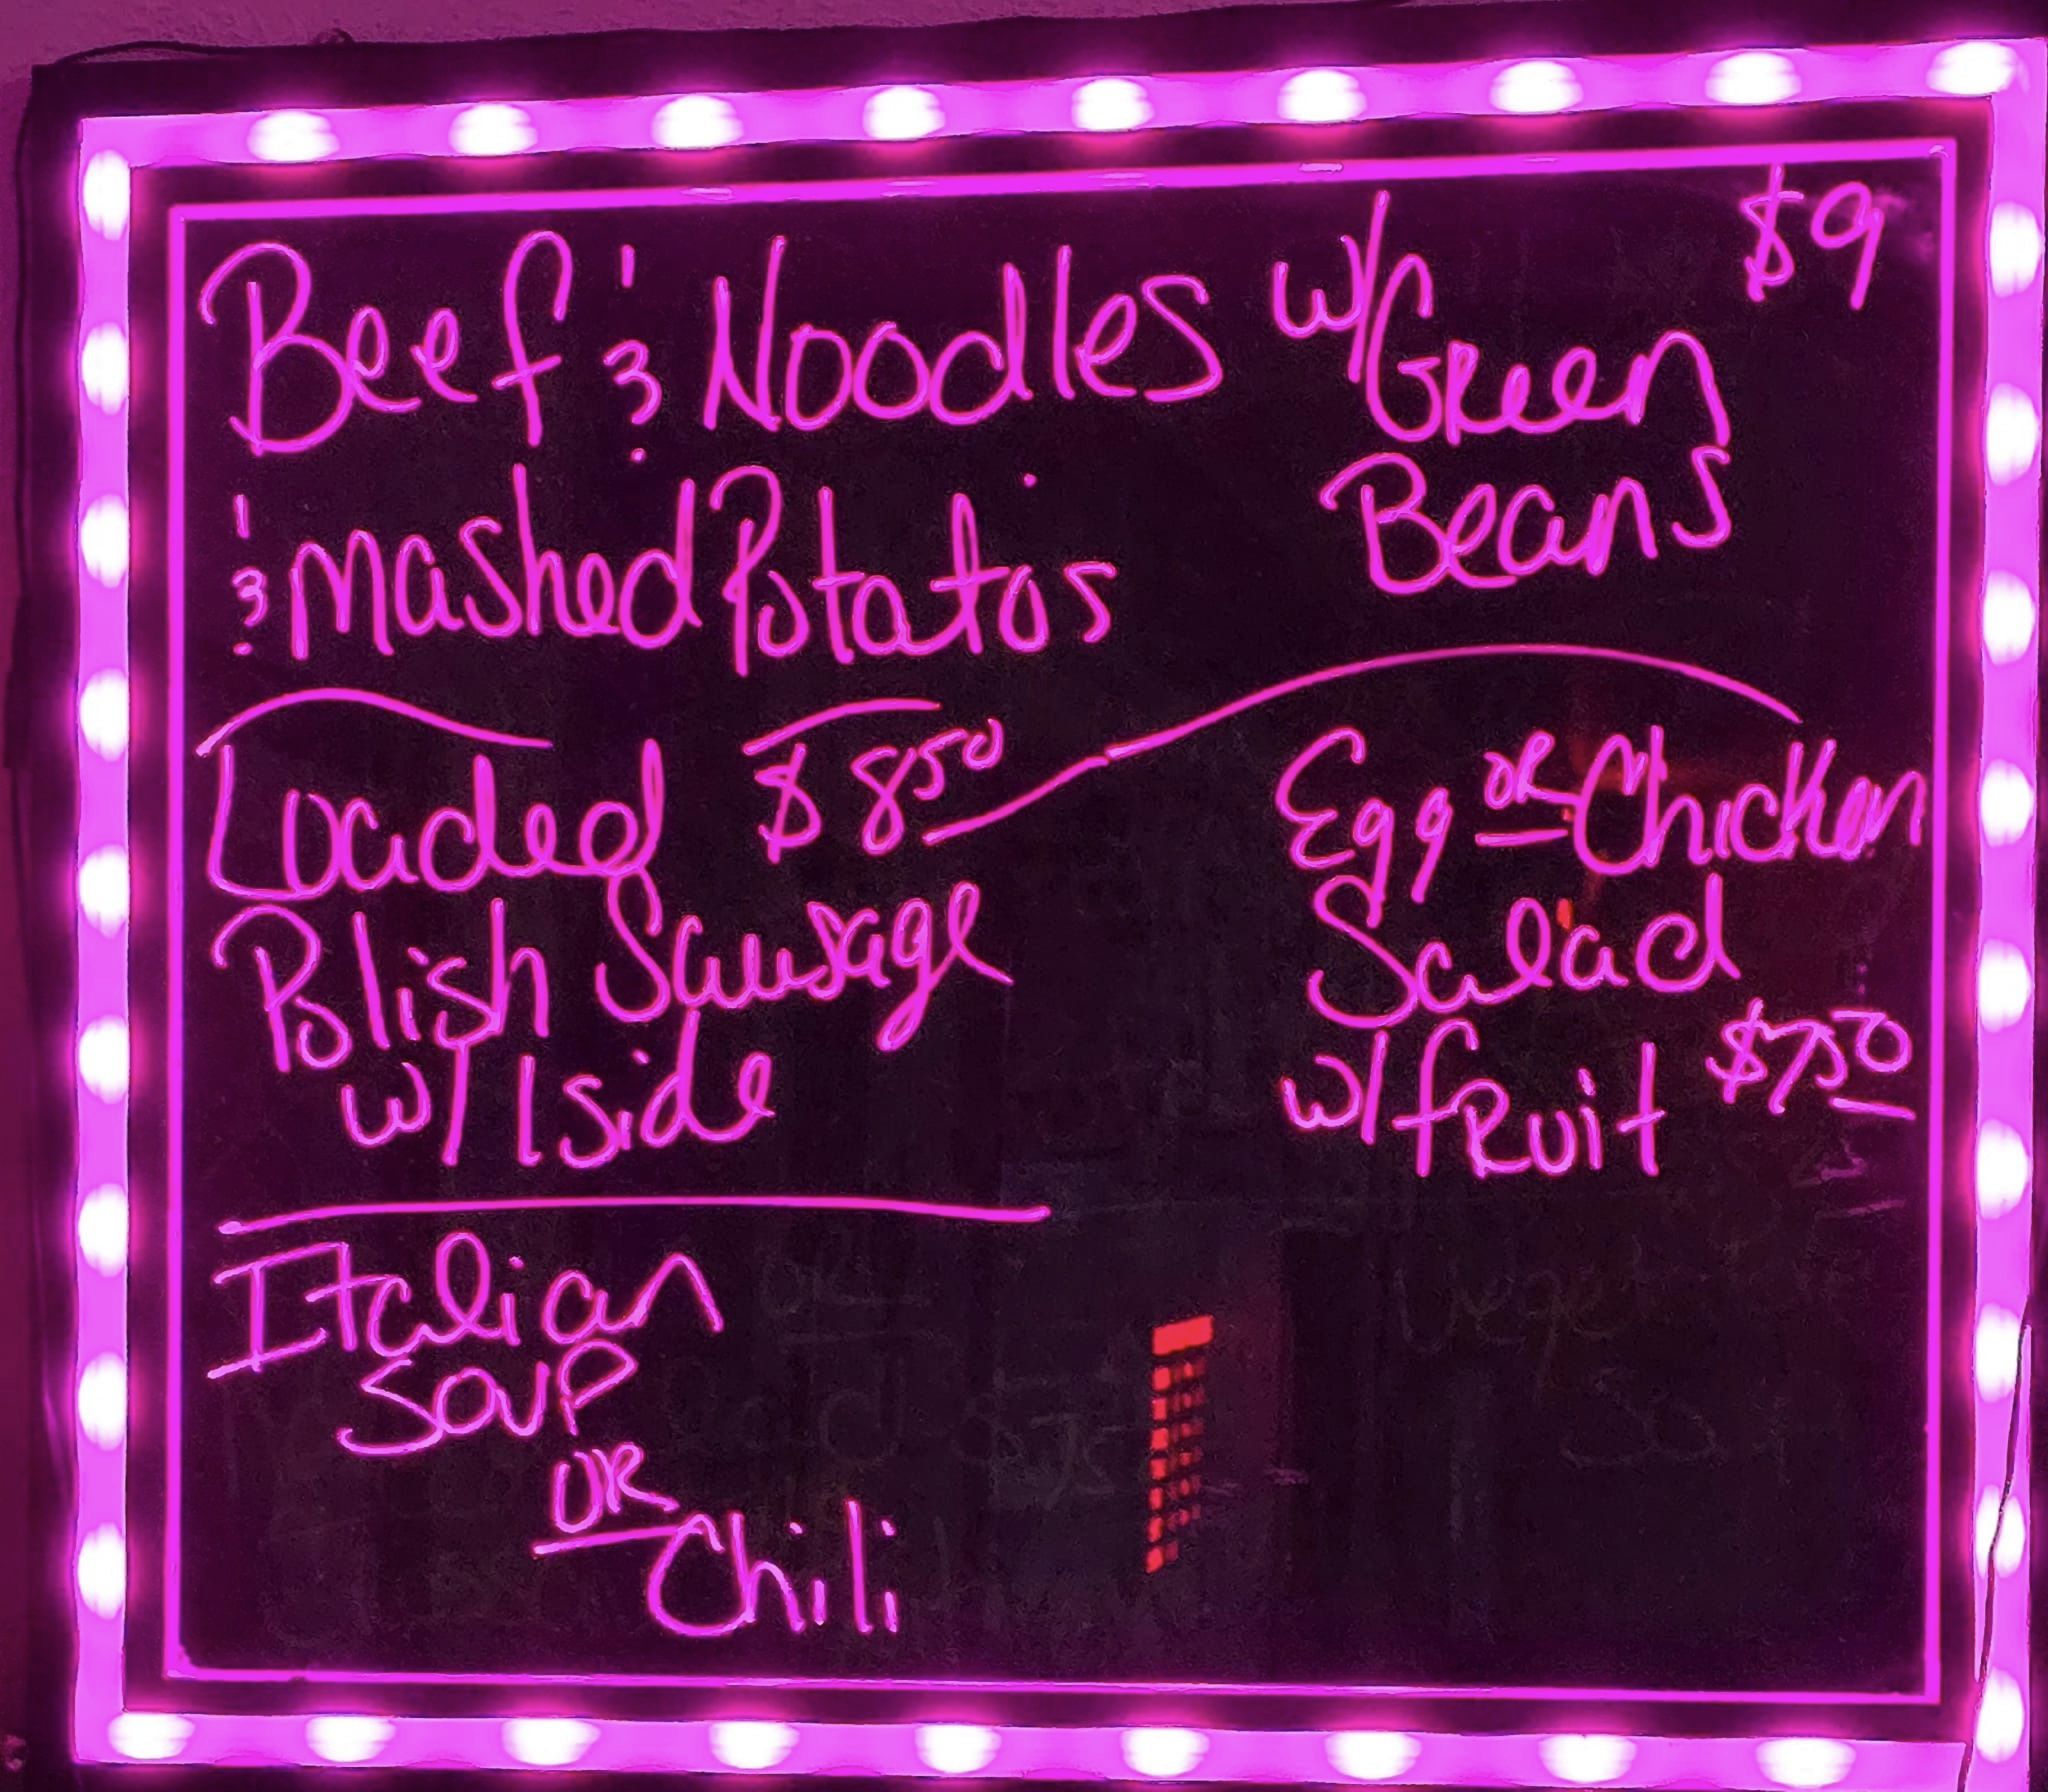 Beef & Noodles w/Green $9
Beans
& Mashed Potatos
Loaded $8 50
Polish Sausage
w/ 1 side
Egg OR Chicken
Salad
w/ fruit $7 50
Italian
Soup
OR
Chili